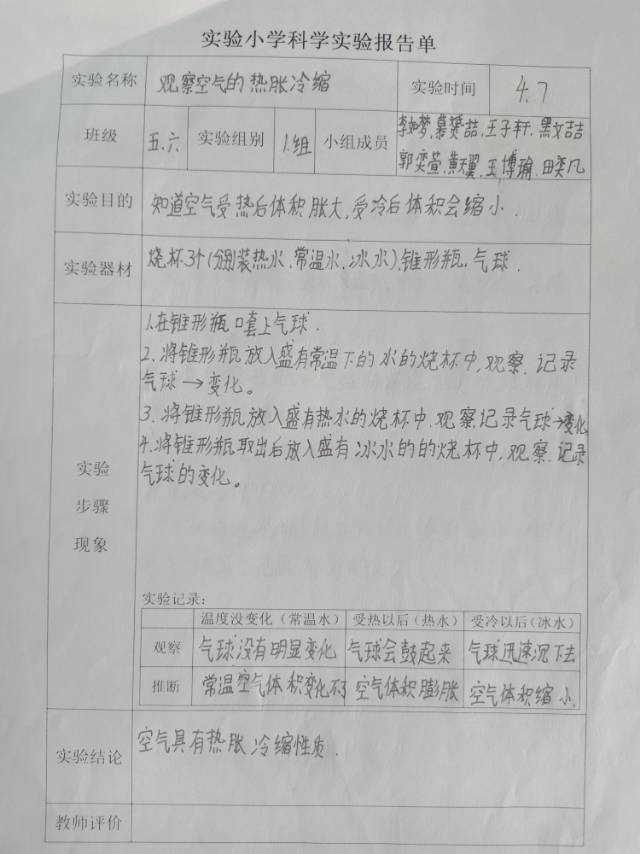 实验小学科学实验报告单
实验名称 观察空气的热胀冷缩 实验时间 4.7
班级 五.六 实验组别 1.组 小组成员 李梦.慕赟喆.王子轩.黑文喆
郭奕萱.黄天翼.王博瑜.田奕凡
实验目的 知道空气受热后体积胀大,受冷后体积会缩小.
实验器材 烧杯3个(分别装热水.常温水.冰水).锥形瓶.气球.
实验
步骤
现象
1.在锥形瓶口套上气球.
2.将锥形瓶放入盛有常温下的水的烧杯中,观察.记录
气球→变化。
3.将锥形瓶放入盛有热水的烧杯中.观察记录气球→变化
4.将锥形瓶取出后放入盛有冰水的的烧杯中,观察.记录
气球的变化。
实验记录:
温度没变化(常温水) 受热以后(热水) 受冷以后(冰水)
观察 气球没有明显变化 气球会鼓起来 气球迅速沉下去
推断 常温空气体积变化不 空气体积膨胀 空气体积缩小.
实验结论 空气具有热胀冷缩性质.
教师评价